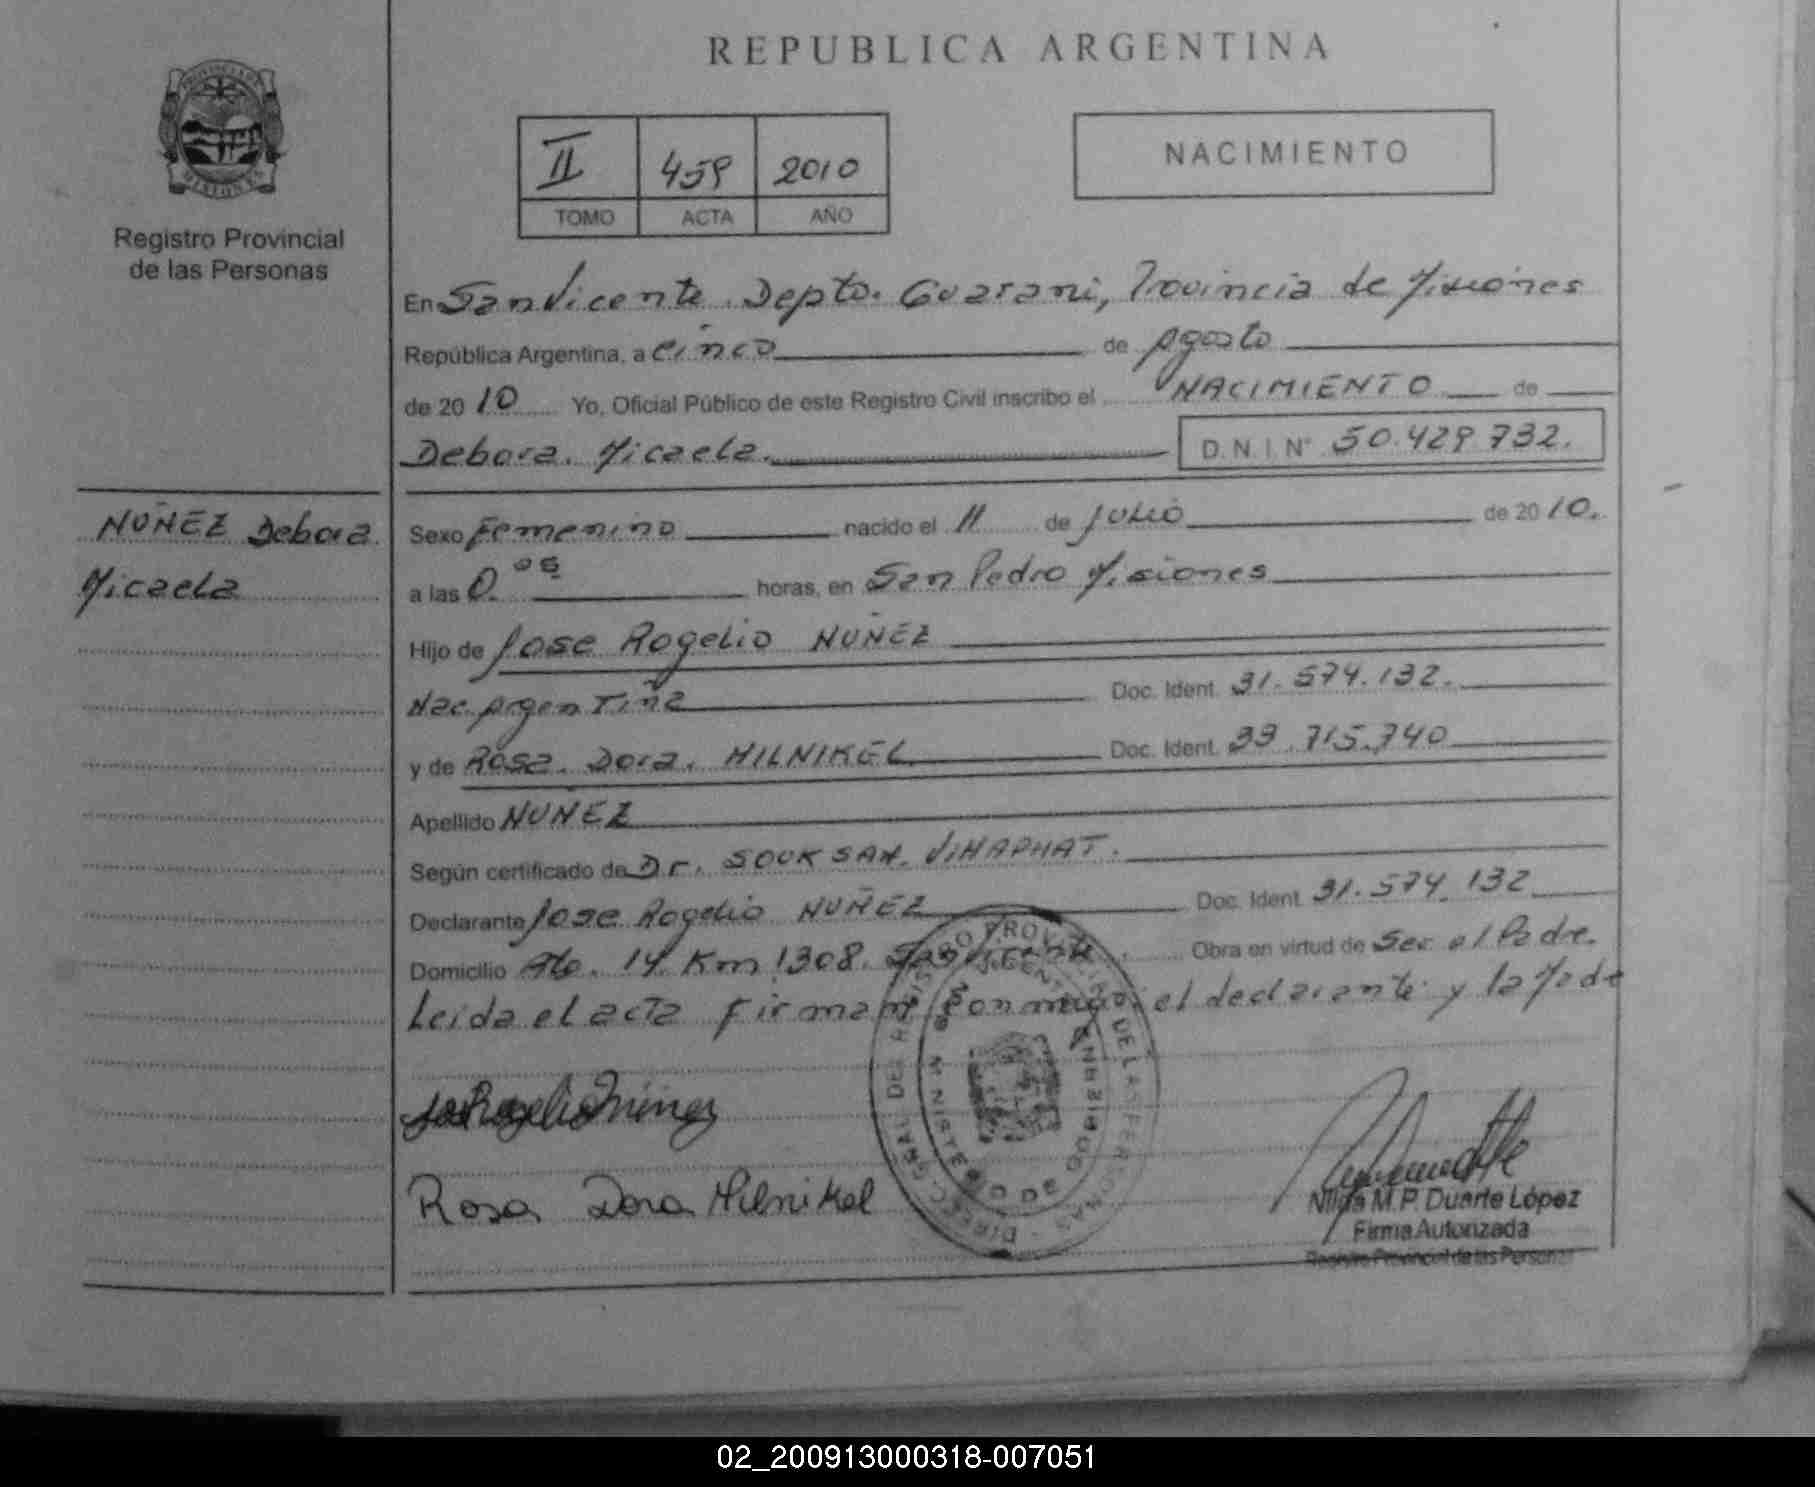 REPUBLICA ARGENTINA
PROVINCIA DE
MISIONES
Registro Provincial
de las Personas
II 459 2010
TOMO ACTA AÑO
NACIMIENTO
En San Vicente. Depto. Guarani, Provincia de Misiones
República Argentina, a cinco de Agosto
de 2010 Yo, Oficial Público de este Registro Civil inscribo el NACIMIENTO de
Debora. Micaela. D.N.I. N° 50.429.732.
NUÑEZ Debora
Micaela
Sexo Femenino nacido el 11 de Julio de 2010.
a las 0. horas, en San Pedro Misiones
Hijo de Jose Rogelio NUÑEZ
Nac. Argentina Doc. Ident. 31.574.132.
y de Rosa. Dora. MILNIKEL Doc. Ident. 33.715.740
Apellido NUÑEZ
Según certificado de Dr. SOUKSAN. VIHAPHAT.
Declarante Jose Rogelio NUÑEZ Doc. Ident. 31.574.132
Domicilio Rto. 14. Km 1308. San Vicente Obra en virtud de Ser el Padre.
Leida el acta firman conmigo el declarante y la Made
Rosa Dora Milnikel
Nilda M.P. Duarte López
Firma Autorizada
Registro Provincial de las Personas
02_200913000318-007051